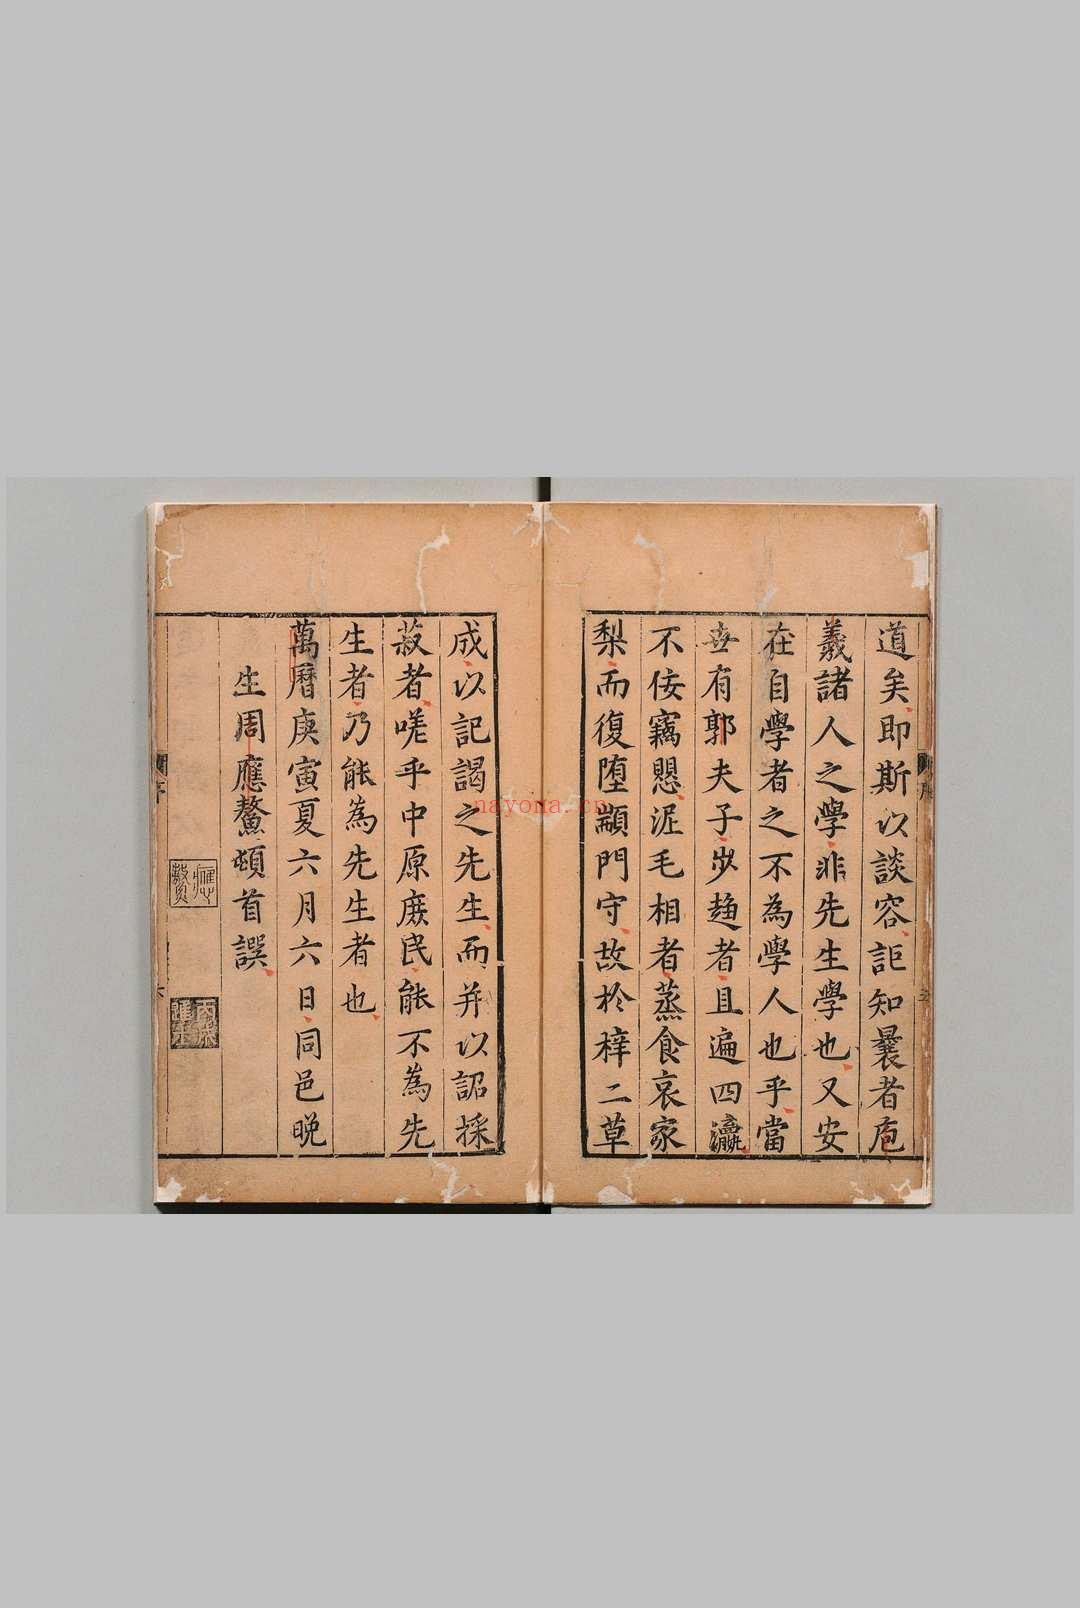 道矣即斯以談容詎知曩者庖
義諸人之學非先生學也又安
在自學者之不為學人也乎當
世有郭夫子步趨者且遍四瀛
不佞竊愳泥毛相者蒸食哀家
梨而復墮顓門守故於梓二草
成以記謁之先生而并以詔採
菽者嗟乎中原庶民能不為先
生者乃能為先生者也
萬曆庚寅夏六月六日同邑晩
生周應鰲頓首譔
nayona.cn